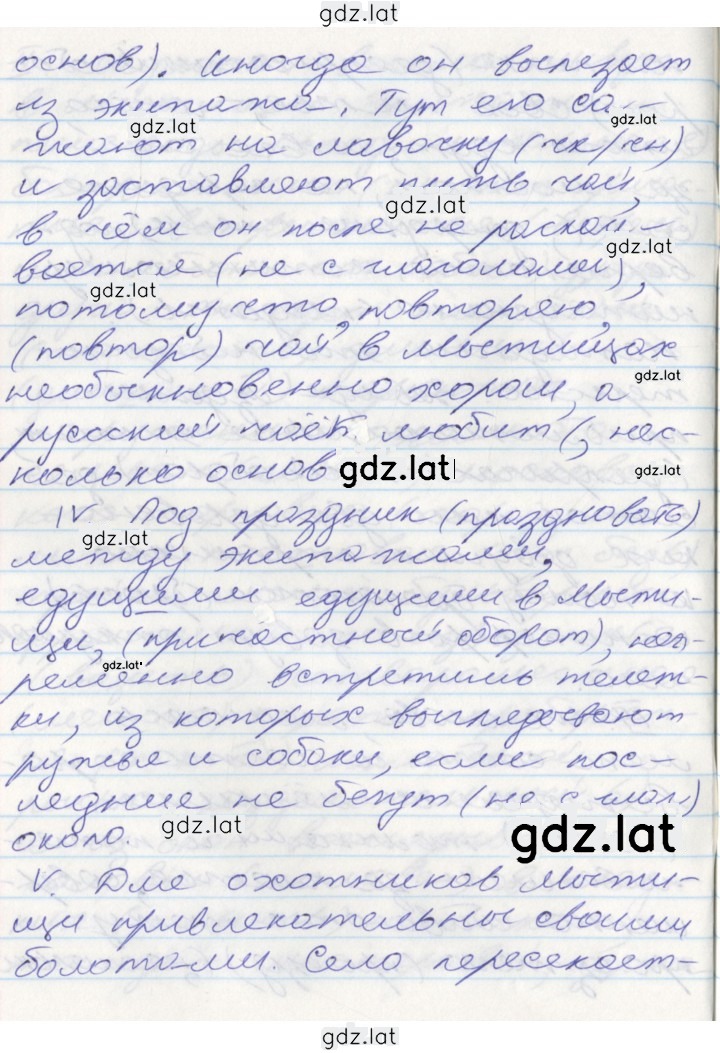 gdz.lat
основ). Иногда он вылезает
из экипажа. Тут его са-
gdz.lat
gdz.lat
жают на лавочку (чк/чн)
и заставляют пить чай,
gdz.lat
в чём он после не раскаи-
gdz.lat
вается (не с глаголами),
gdz.lat
потому что, повторяю,
(повтор) чай в Мытищах
gdz.lat
необыкновенно хорош, а
русский чаёк любит (, нес-
колько основ
gdz.lat
gdz.lat
IV. Под праздник (праздновать)
gdz.lat
между экипажами,
едущими едущими в Мыти-
щи, (причастный оборот), неп-
gdz.lat
ременно встретишь тележ-
ки, из которых выглядывают
ружья и собаки, если пос-
ледние не бегут (не с глаг.)
около.
gdz.lat
gdz.lat
V. Для охотников Мыти-
щи привлекательны своими
болотами. Село пересекает-
gdz.lat